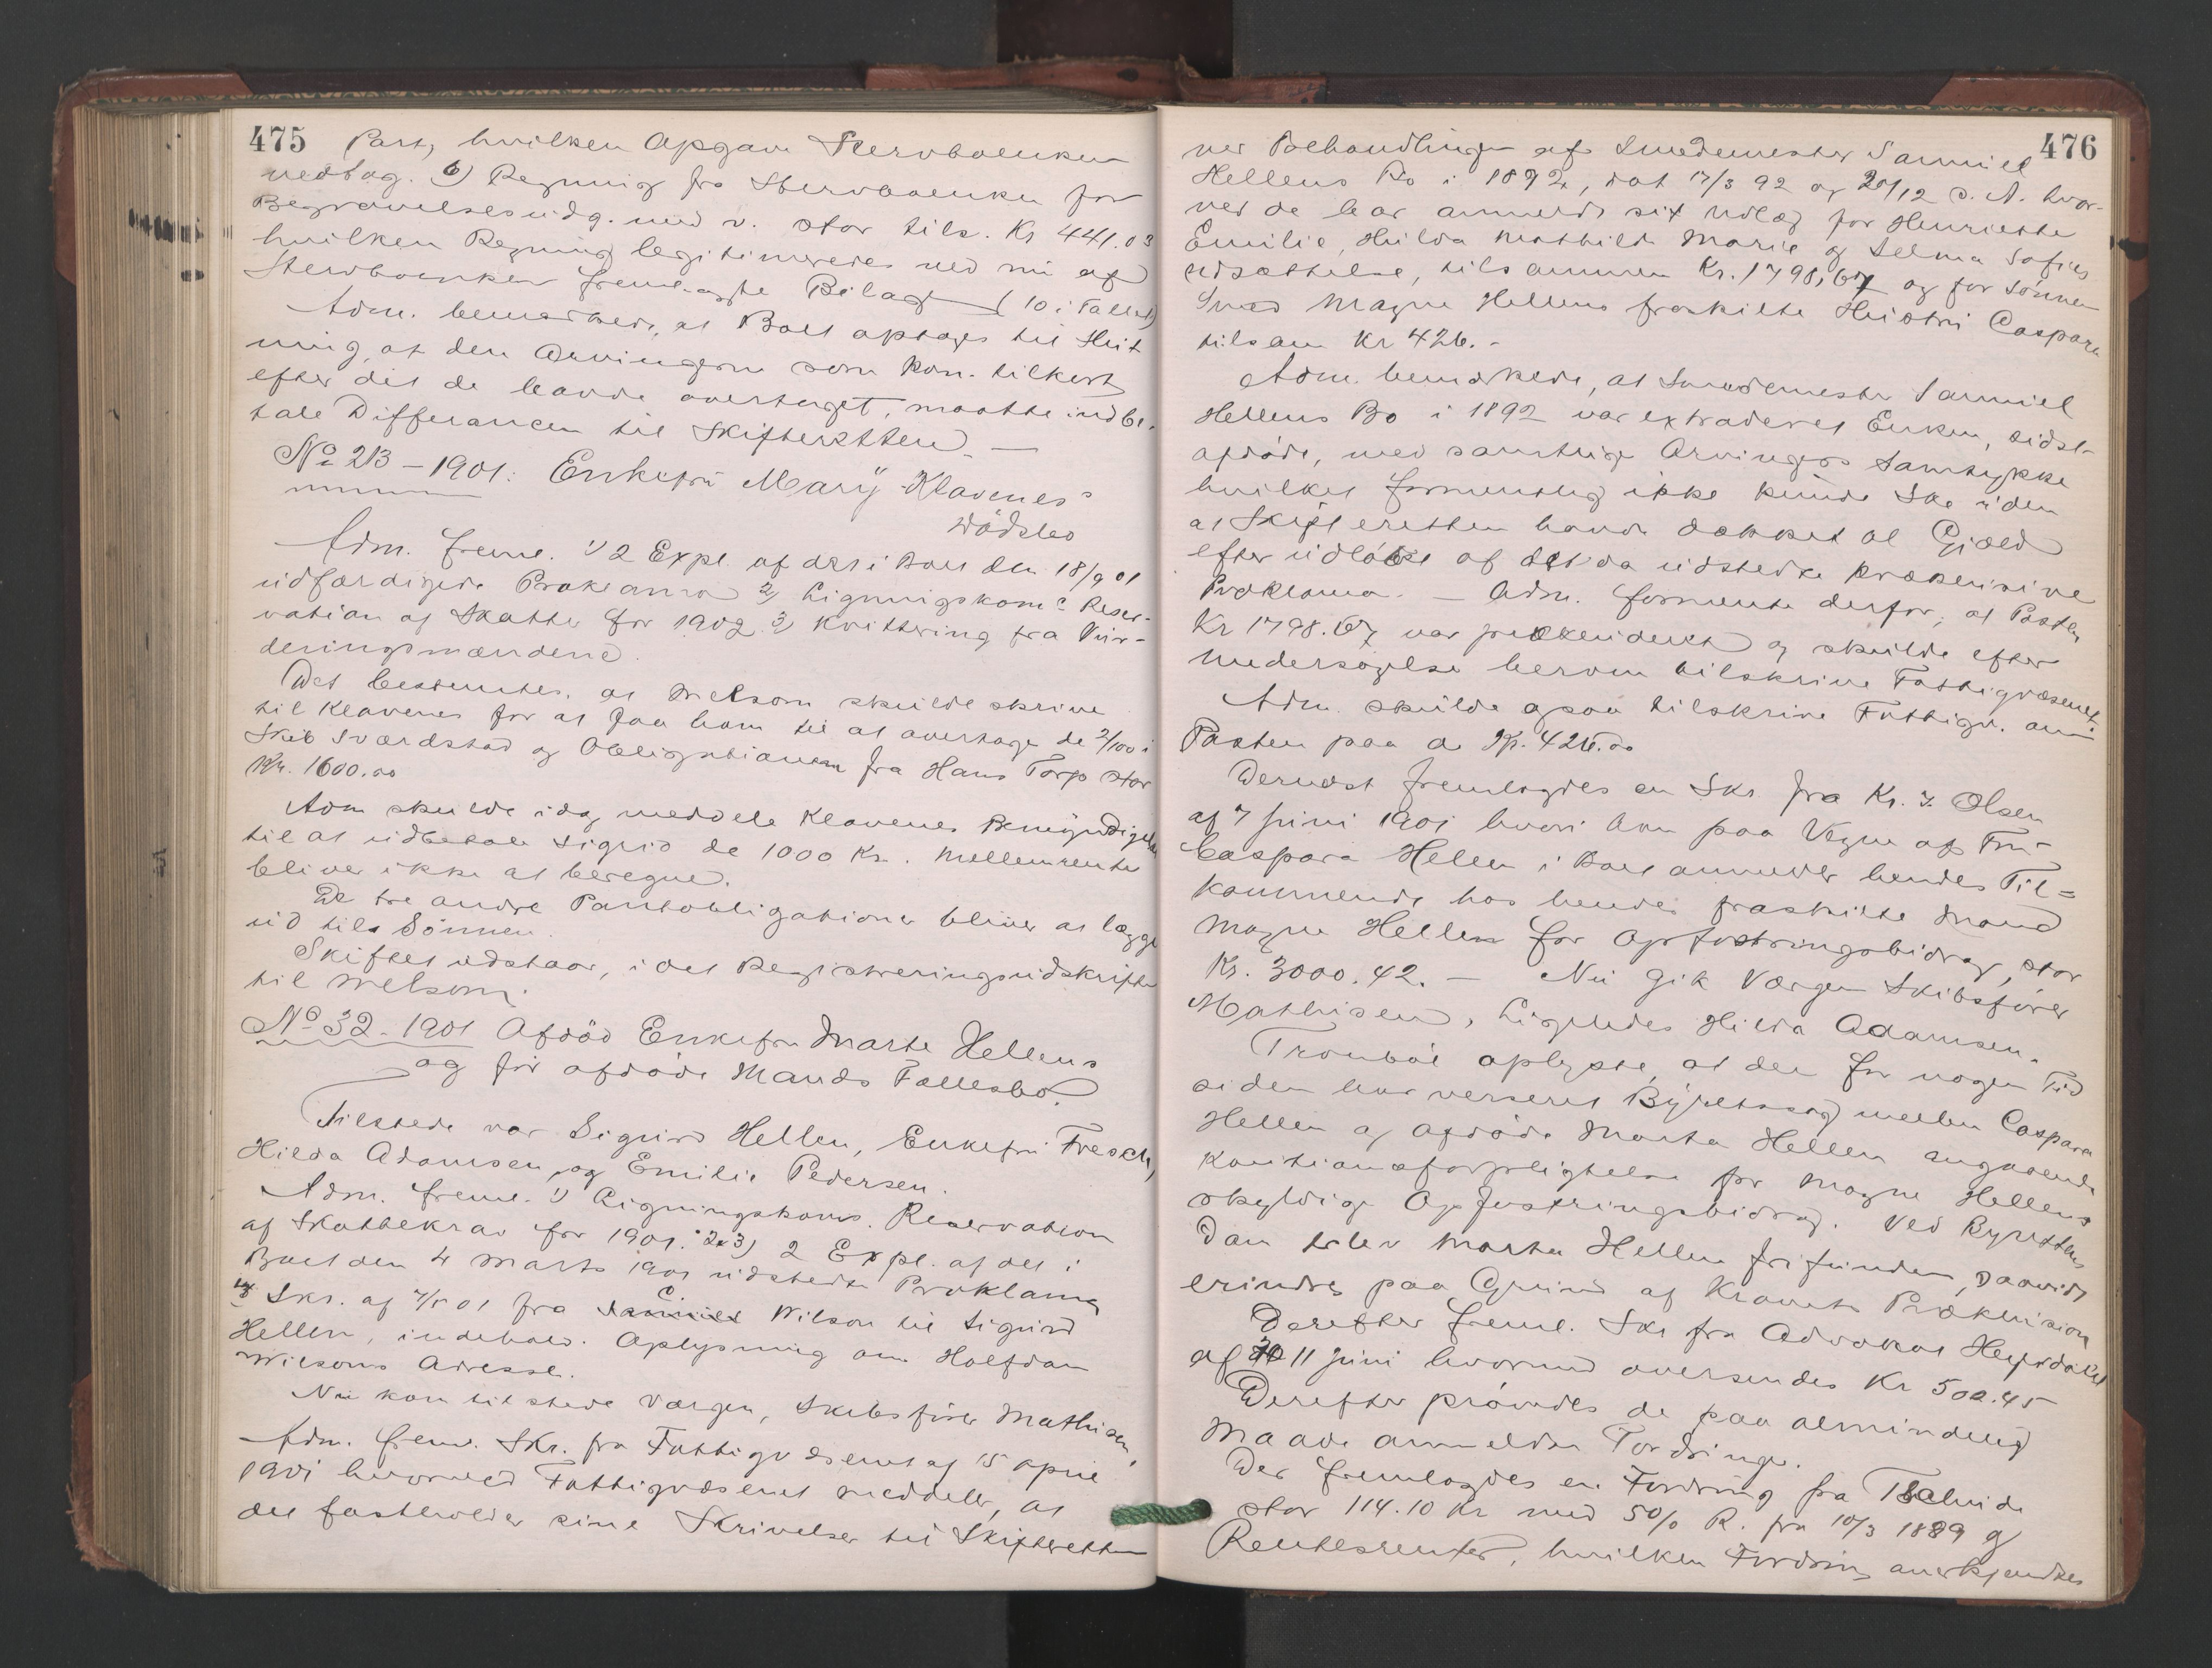 475
Part, hvilken Opgave Stervboenken
vedtog. 6) Regning fra Stervboenken for
Begravelsesudg. med v. stor tils. Kr 441.03
hvilken Regning legitimeredes ved mi af
Stervboenken fremlagte Bilag (10 i Tallet)
Adm. bemærkede, at Boet optages til Slut
ning, at den Arvingerne som kom. tilkort
efter det de havde overtaget, maatte indbe-
tale Differancen til Skifteretten. —
No 213 – 1901: Enkefru Mary Klavenes'
Dødsbo
Adm. freml. 1) 2 Expl. af det i Boet den 18/9 01
udfærdigede Proklama 2) Ligningskoms Reser-
vation af Skatter for 1902 3) Kvittering fra Vur-
deringsmændene.
Det bestemtes, at Melsom skulde skrive
til Klavenes for at faa ham til at overtage de 2/100 i
Skib Sværdstad og Obligationen fra Hans Torp stor
Kr. 1600.00
Adm skulde idag meddele Klavenes Bemyndigelse
til at udbetale Sigrid de 1000 Kr. Mellemrente
bliver ikke at beregne.
De tre andre Pantobligationer bliver at lægge
ud til Sønnen.
Skiftet udstaar, idet Registreringsudskrift
til Melsom.
No 32 – 1901 Afdød Enkefru Marte Hellens
og før afdøde Mands Fællesbo.
Tilstede var Sigurd Hellen, Enkefru Fresch,
Hilda Adamsen og Emilie Pedersen.
Adm. freml. 1) Ligningskoms. Reservation
af Skattekrav for 1901. 2 & 3) 2 Expl. af det i
Boet den 4 Marts 1901 udstedte Proklama
4) Skr. af 7/5 01 fra C. Wilson til Sigurd
Hellen, indehold. Oplysning om Halfdan
Wilsons Adresse.
Nu kom tilstede Værgen, Skibsfører Mathisen.
Adm. freml. Skr. fra Fattigvæsenet af 15 April
1901 hvorved Fattigvæsenet meddeler, at
det fastholder sine Skrivelser til Skifteretten
476
ved Behandlingen af Smedemester Samuel
Hellens Bo i 1892, dat 17/3 92 og 20/12 s. A. hvor-
ved de har anmeldt sit Udlæg for Henriette
Emilie, Hilda Mathilde Marie og Selma Sofies
udsættelse, tilsammen Kr. 1798,67 og for Sønnen
Smed Magne Hellens fraskilte Hustru Caspara
tilsam Kr 426.-
Adm. bemærkede, at Smedemester Samuel
Hellens Bo i 1892 var extraderet Enken, sidst-
afdøde, med samtlige Arvingers Samtykke
hvilket formentlig ikke kunde ske uden
at Skifteretten havde dækket al Gjæld
efter udløbet af det da udstedte præclusive
Proklama. – Adm. formente derfor, at Posten
Kr 1798.67 var præcluderet og skulde efter
Undersøgelse herom tilskrive Fattigvæsenet.
Adm. skulde ogsaa tilskrive Fattigv. om
Posten paa a Kr. 426.00
Dernæst fremlagdes en Skr. fra Kr. J. Olsen
af 7 Juni 1901 hvori han paa Vegne af Fru
Caspara Hellen i Boet anmelder hendes Til=
kommende hos hendes fraskilte Mand
Magne Hellen for Opfostringsbidrag, stor
Kr. 3000.42. – Nu gik Værgen Skibsfører
Mathisen, Ligeledes Hilda Adamsen.
Tronbøl oplyste, at der for nogen Tid
siden har verseret Byretssag mellem Caspara
Hellen og Afdøde Marta Hellen angaaende
Kautionsforpligtelse for Magne Hellens
skyldige Opfostringsbidrag. Ved Byrettens
Dom blev Marta Hellen frifunden, saavidt
erindres paa Grund af Kravets Præclusion
Derefter freml. Skr fra Advokat Heyerdahl
af 11 Juni hvorved oversendes Kr 502.45
Derefter prøvedes de paa almindelig
Maade anmeldte Fordringer.
Der fremlagdes en Fordring fra
stor 114.10 Kr med 5 0/0 R. fra 10/3 1889 og
Rentesrenter, hvilken Fordring anerkjendtes